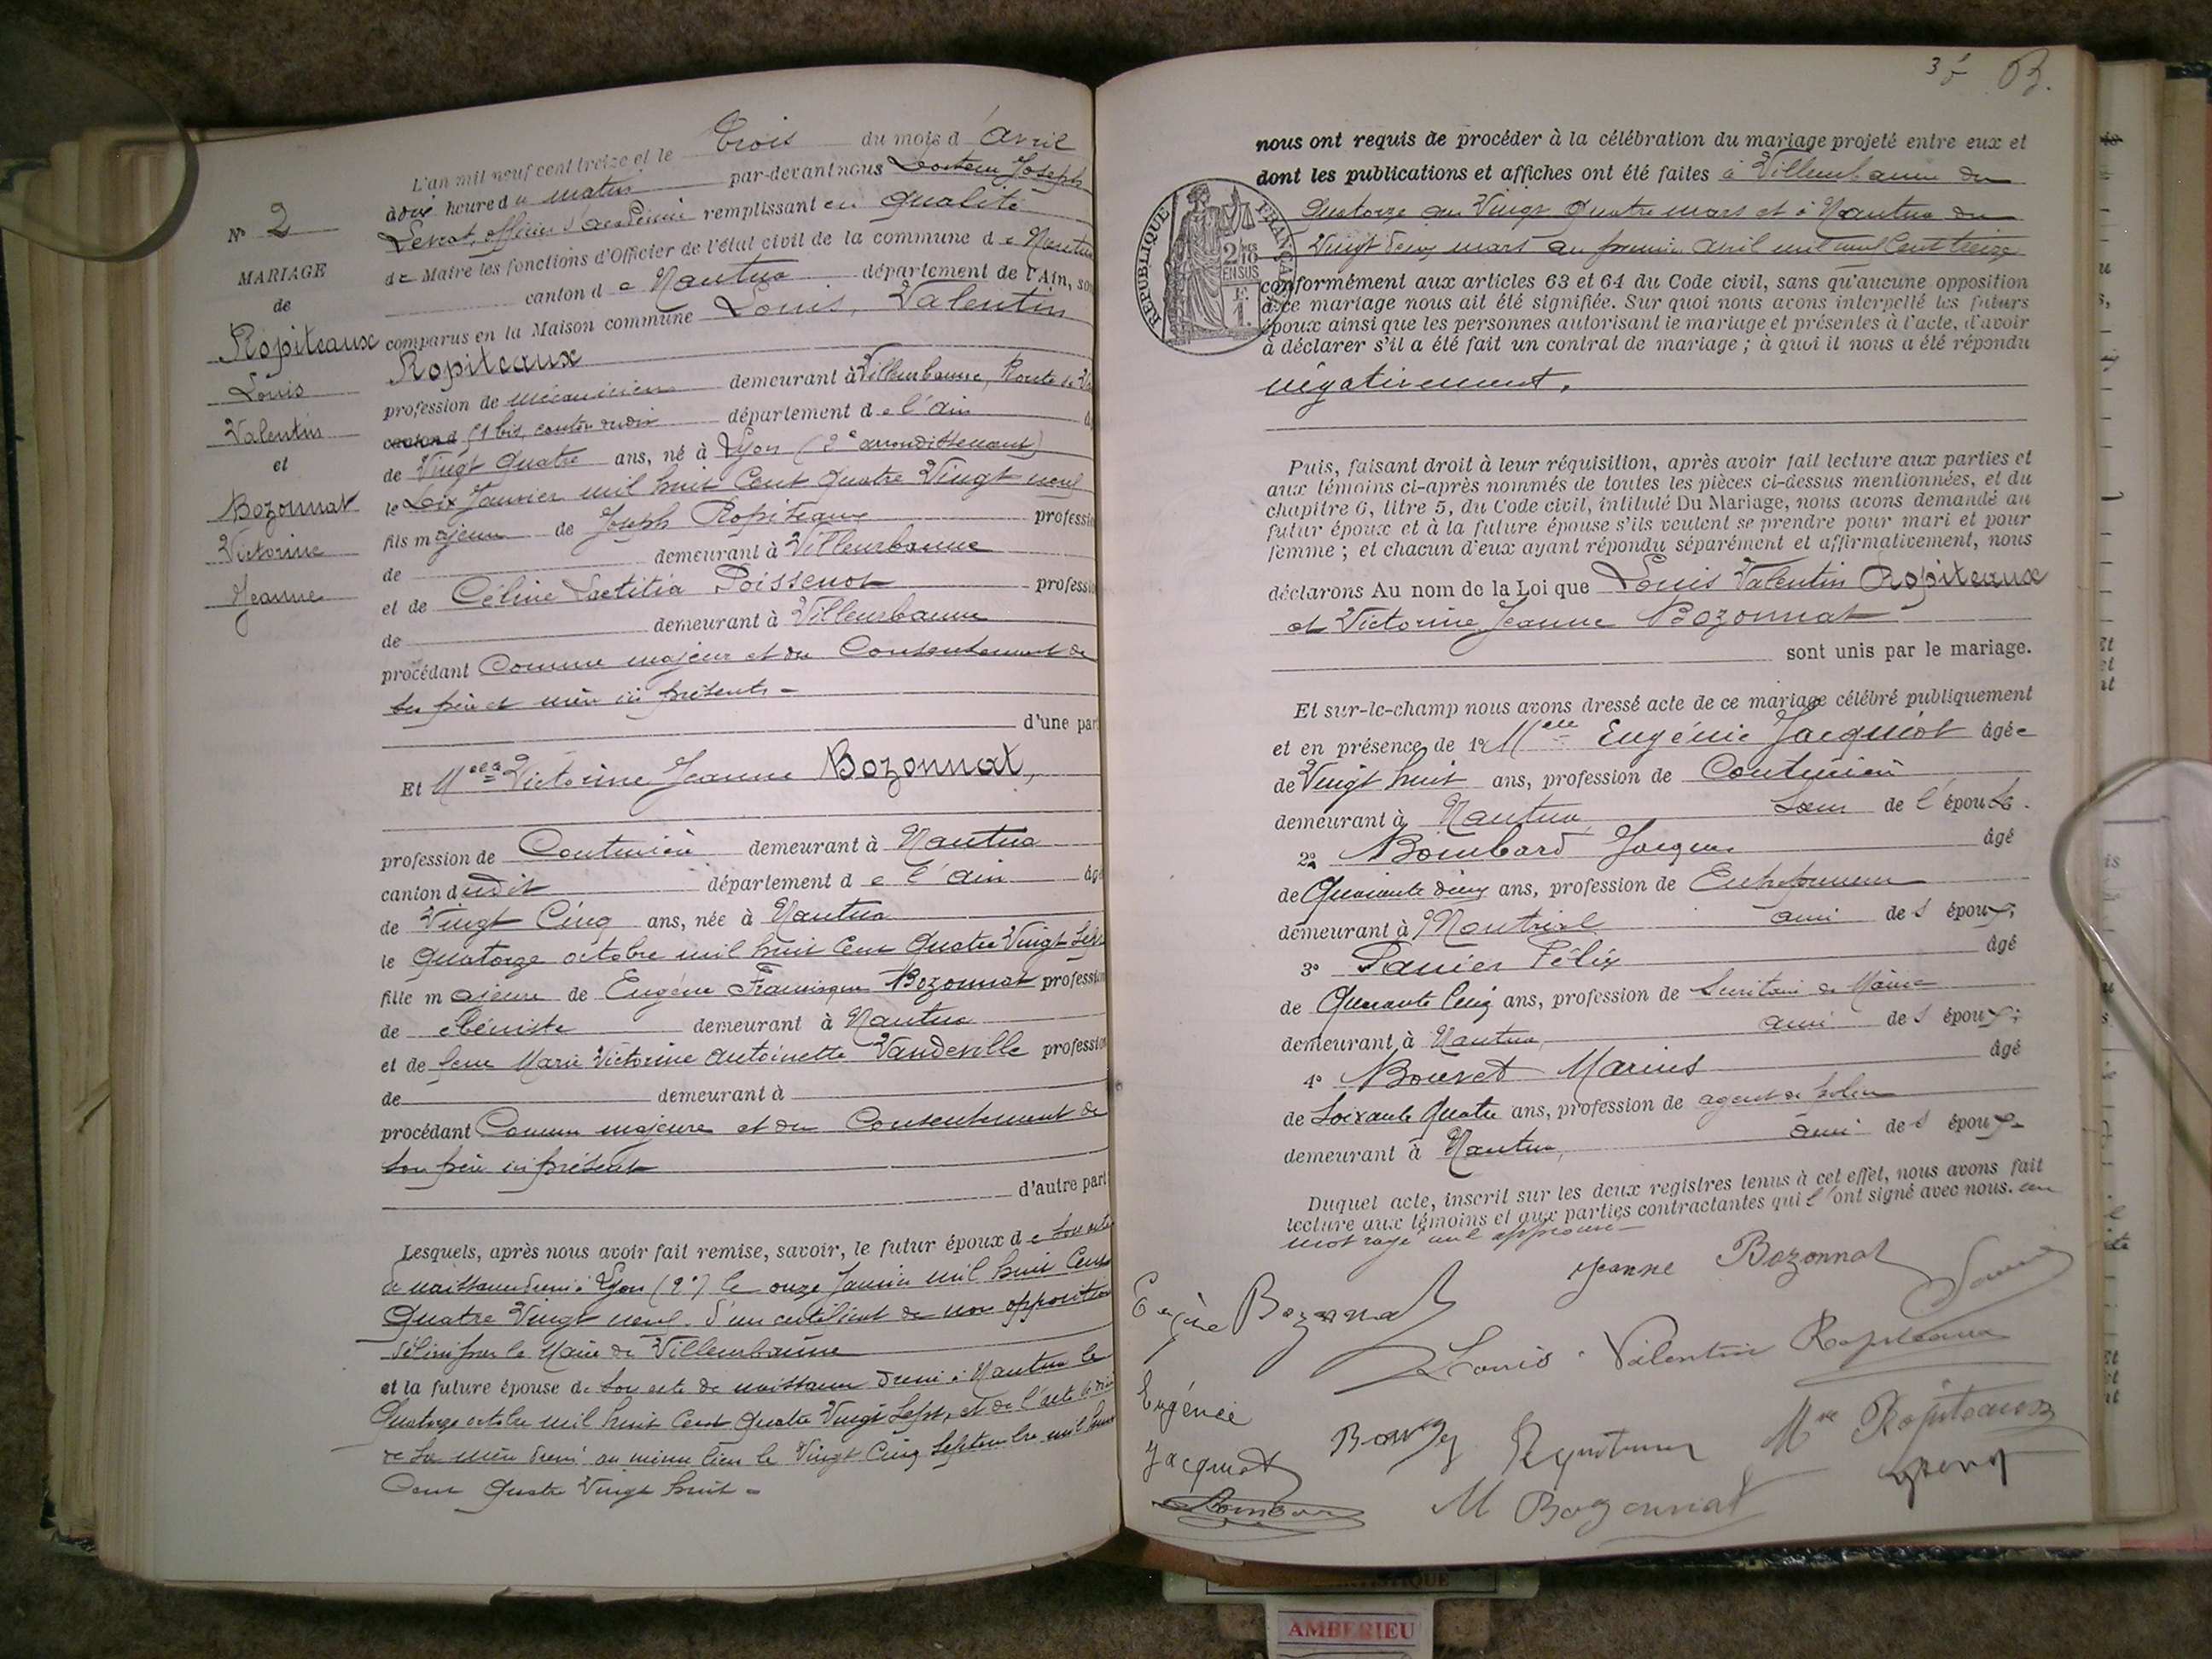 L'an mil neuf cent treize et le Trois du mois d'Avril
à dix heure du matin par-devant nous Docteur Joseph
Levrat, officier d'académie remplissant en qualité
de Maire les fonctions d'Officier de l'état civil de la commune de Nantua
canton de Nantua département de l'Ain, son
comparus en la Maison commune Louis, Valentin
Ropiteaux
profession de mécanicien demeurant à Villeurbanne, Route de
canton d 51 bis, canton dudit département de l'Ain
de Vingt quatre ans, né à Lyon (2e arrondissement)
le Dix Janvier mil huit Cent quatre Vingt neuf
fils majeur de Joseph Ropiteaux professio
de demeurant à Villeurbanne
et de Céline Laetitia Poissenot professio
de demeurant à Villeurbanne
procédant Comme majeur et du Consentement de
ses père et mère ici présents -
d'une par
Et Melle Victorine Jeanne Bozonnat,
profession de Couturière demeurant à Nantua
canton dudit département de l'Ain âg
de Vingt Cinq ans, née à Nantua
le Quatorze octobre mil huit Cent Quatre Vingt Sept
fille majeure de Eugène Francisque Bozonnat profession
de ébéniste demeurant à Nantua
et de feue Marie Victorine Antoinette Vandeville profession
de demeurant à
procédant Comme majeure et du Consentement de
son père ici présent
d'autre part
Lesquels, après nous avoir fait remise, savoir, le futur époux de Son acte
de naissance dressé à Lyon (2e) le onze Janvier mil huit Cent
Quatre Vingt neuf. d'un certificat de non opposition
délivré par le Maire de Villeurbanne
et la future épouse de Son acte de naissance dressé à Nantua le
Quatorze octobre mil huit Cent Quatre Vingt Sept, et de l'acte de décès
de sa mère dressé au même lieu le Vingt Cinq Septembre mil huit
Cent Quatre Vingt huit -
N° 2
MARIAGE
de
Ropiteaux
Louis
Valentin
et
Bozonnat
Victorine
Jeanne
B.
nous ont requis de procéder à la célébration du mariage projeté entre eux et
dont les publications et affiches ont été faites à Villeurbanne du
Quatorze au Vingt Quatre mars et à Nantua du
Vingt deux mars au premier avril mil neuf Cent treize
conformément aux articles 63 et 64 du Code civil, sans qu'aucune opposition
à ce mariage nous ait été signifiée. Sur quoi nous avons interpellé les futurs
époux ainsi que les personnes autorisant le mariage et présentes à l'acte, d'avoir
à déclarer s'il a été fait un contrat de mariage ; à quoi il nous a été répondu
négativement.
REPUBLIQUE FRANÇAISE
2/10 EN SUS
1 F
Puis, faisant droit à leur réquisition, après avoir fait lecture aux parties et
aux témoins ci-après nommés de toutes les pièces ci-dessus mentionnées, et du
chapitre 6, titre 5, du Code civil, intitulé Du Mariage, nous avons demandé au
futur époux et à la future épouse s'ils veulent se prendre pour mari et pour
femme ; et chacun d'eux ayant répondu séparément et affirmativement, nous
déclarons Au nom de la Loi que Louis Valentin Ropiteaux
et Victorine Jeanne Bozonnat
sont unis par le mariage.
Et sur-le-champ nous avons dressé acte de ce mariage célébré publiquement
et en présence de 1° Melle Eugénie Jacquiot âgée
de Vingt huit ans, profession de Couturière
demeurant à Nantua, Sœur de l'épouse.
2° Bombard Jacques âgé
de Quarante deux ans, profession de Entrepreneur
demeurant à Montréal ami des époux;
3° Panier Félix âgé
de Quarante Cinq ans, profession de Secrétaire de Mairie
demeurant à Nantua, ami des époux;
4° Bouvet Marius âgé
de Soixante Quatre ans, profession de agent de police
demeurant à Nantua, ami des époux.
Duquel acte, inscrit sur les deux registres tenus à cet effet, nous avons fait
lecture aux témoins et aux parties contractantes qui l'ont signé avec nous. un
mot rayé nul approuvé -
Jeanne Bozonnat
Eugène Bozonnat
Louis Valentin Ropiteaux
Eugénie
Jacquiot
Mme Ropiteaux
M Bozonnat
AMBERIEU